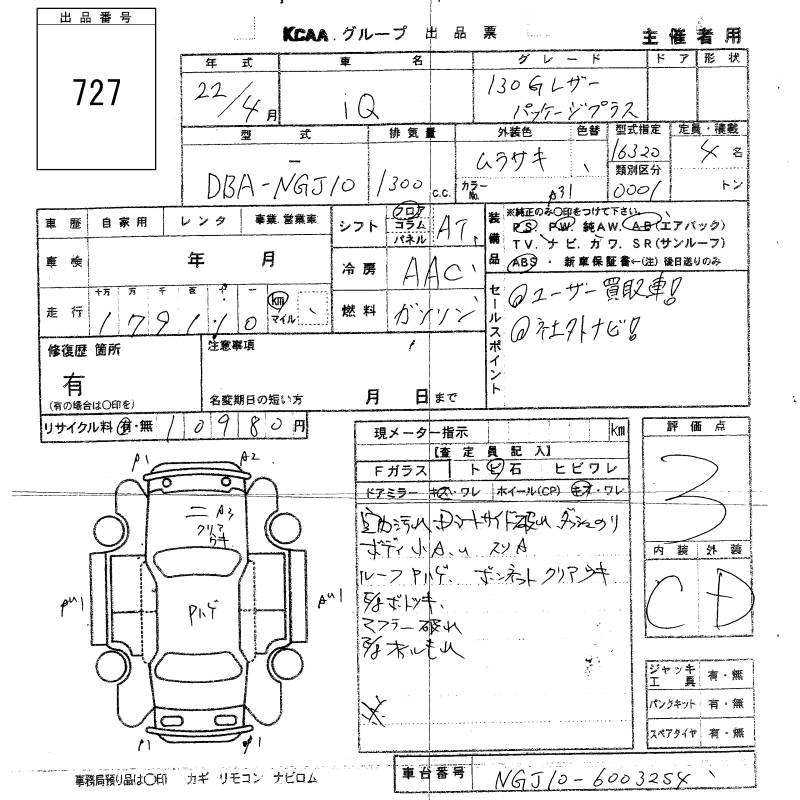 出品番号
727
KCAA グループ 出品票
主催者用
年式 車名 グレード ドア 形状
22/4月 iQ 130Gレザーパッケージプラス
型式 排気量 外装色 色替 型式指定 定員・積載
DBA-NGJ10 1300 c.c. ムラサキ 16320 4名
カラーNo. 類別区分 0001 トン
車歴 自家用 レンタ 事業.営業車
車検 年 月
走行 十万 万 千 百 十 一 km マイル
修復歴 箇所
有
(有の場合は○印を)
注意事項
名変期日の短い方 月 日まで
リサイクル料 有・無 10980円
シフト フロア コラム パネル AT
冷房 AAC
燃料 ガソリン
装備品
※純正のみ○印をつけて下さい。
PS. PW. 純AW. AB(エアバック)
TV. ナビ. カワ. SR(サンルーフ)
ABS ・ 新車保証書←(注)後日送りのみ
セールスポイント
ユーザー買取車!
社外ナビ!
現メーター指示 km
【査定員記入】
Fガラス トビ石 ヒビワレ
ドアミラー キズ・ワレ ホイール(CP) キズ・ワレ
ボディ小A.u スリA
ルーフPハゲ、ボンネットクリアウキ
マフラー破れ
評価点
3
内装 外装
C D
ジャッキ工具 有・無
パンクキット 有・無
スペアタイヤ 有・無
P1 A2
A3
クリアウキ
Pハゲ
AU1
P1
事務局預り品は○印 カギ リモコン ナビロム
車台番号 NGJ10-6003254